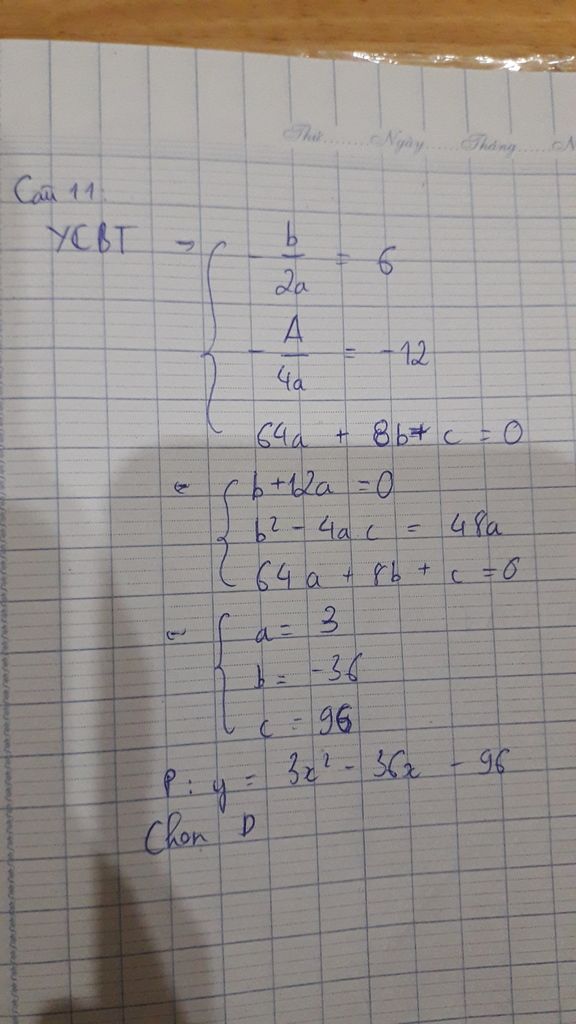 Thứ........Ngày........Tháng........N
Câu 11:
YCBT → { - b/2a = 6
- Δ/4a = -12
64a + 8b + c = 0
{ b + 12a = 0
b² - 4ac = 48a
64a + 8b + c = 0
{ a = 3
b = -36
c = 96
P : y = 3x² - 36x - 96
Chọn D